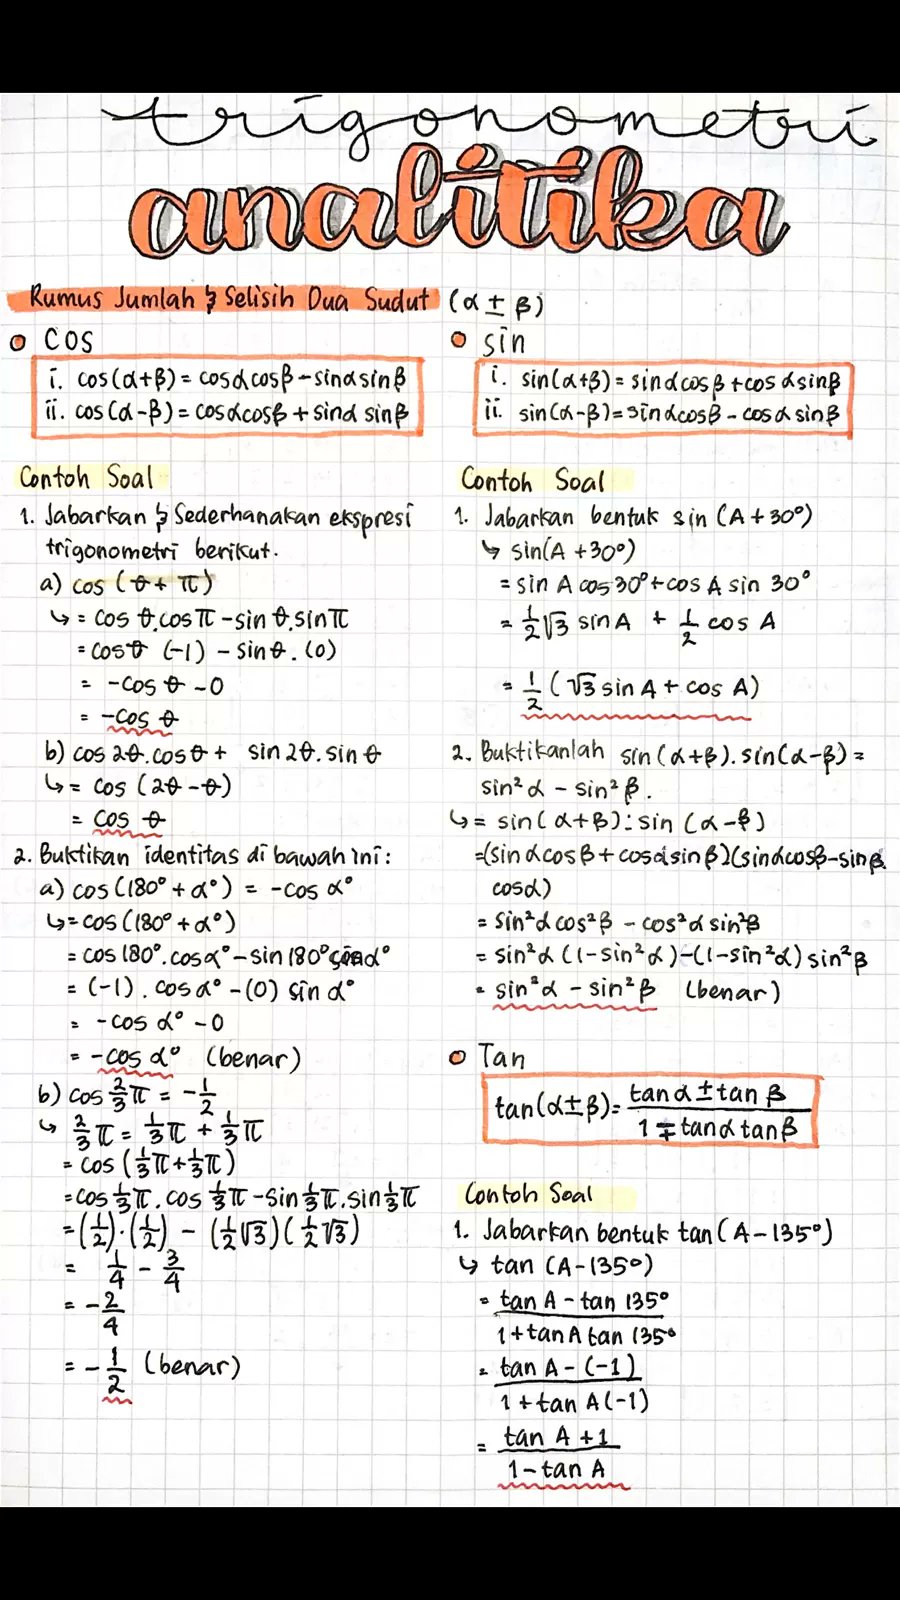 trigonometri
analitika
Rumus Jumlah & Selisih Dua Sudut (α ± β)
cos
i. cos(α+β) = cosαcosβ - sinαsinβ
ii. cos(α-β) = cosαcosβ + sinα sinβ
Contoh Soal
1. Jabarkan & Sederhanakan ekspresi
trigonometri berikut.
a) cos (θ + π)
↳ = cos θ.cosπ - sin θ.sinπ
= cosθ (-1) - sinθ. (0)
= -cos θ - 0
= -cos θ
b) cos 2θ.cosθ + sin 2θ. sin θ
↳ = cos (2θ - θ)
= cos θ
2. Buktikan identitas di bawah ini:
a) cos(180° + α°) = -cos α°
↳ = cos (180° + α°)
= cos 180°. cosα° - sin 180° sinα°
= (-1). cosα° - (0) sin α°
= -cos α° - 0
= -cos α° (benar)
b) cos 2/3 π = -1/2
↳ 2/3 π = 1/3 π + 1/3 π
= cos (1/3 π + 1/3 π)
= cos 1/3 π. cos 1/3 π - sin 1/3 π. sin 1/3 π
= (1/2).(1/2) - (1/2 √3)(1/2 √3)
= 1/4 - 3/4
= -2/4
= -1/2 (benar)
sin
i. sin(α+β) = sinαcosβ + cosαsinβ
ii. sin(α-β) = sinαcosβ - cosα sinβ
Contoh Soal
1. Jabarkan bentuk sin (A + 30°)
↳ sin(A + 30°)
= sin A cos 30° + cos A sin 30°
= 1/2 √3 sin A + 1/2 cos A
= 1/2 (√3 sin A + cos A)
2. Buktikanlah sin(α+β). sin(α-β) =
sin²α - sin²β.
↳ = sin(α+β). sin (α-β)
= (sinαcosβ + cosαsinβ)(sinαcosβ - sinβ.
cosα)
= sin²α cos²β - cos²α sin²β
= sin²α (1 - sin²α) - (1 - sin²α) sin²β
= sin²α - sin²β (benar)
Tan
tan(α±β) = tanα ± tan β / 1 ∓ tanα tanβ
Contoh Soal
1. Jabarkan bentuk tan(A - 135°)
↳ tan (A - 135°)
= tan A - tan 135° / 1 + tan A tan 135°
= tan A - (-1) / 1 + tan A(-1)
= tan A + 1 / 1 - tan A